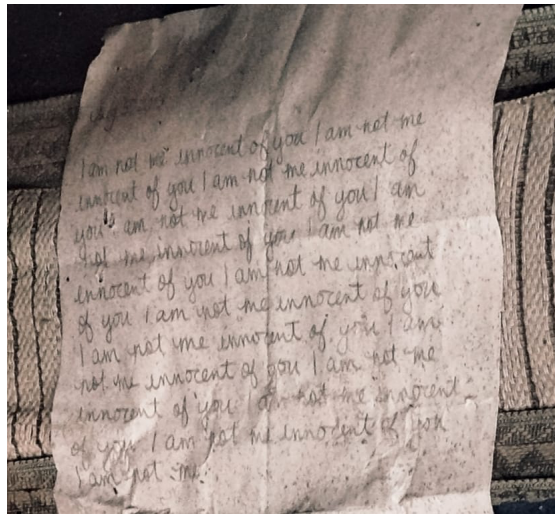 I am not me innocent of you I am not me
innocent of you I am not me innocent of
you I am not me innocent of you I am
not me innocent of you I am not me
innocent of you I am not me innocent
of you I am not me innocent of you
I am not me innocent of you I am
not me innocent of you I am not me
innocent of you I am not me innocent
of you I am not me innocent of you
I am not me